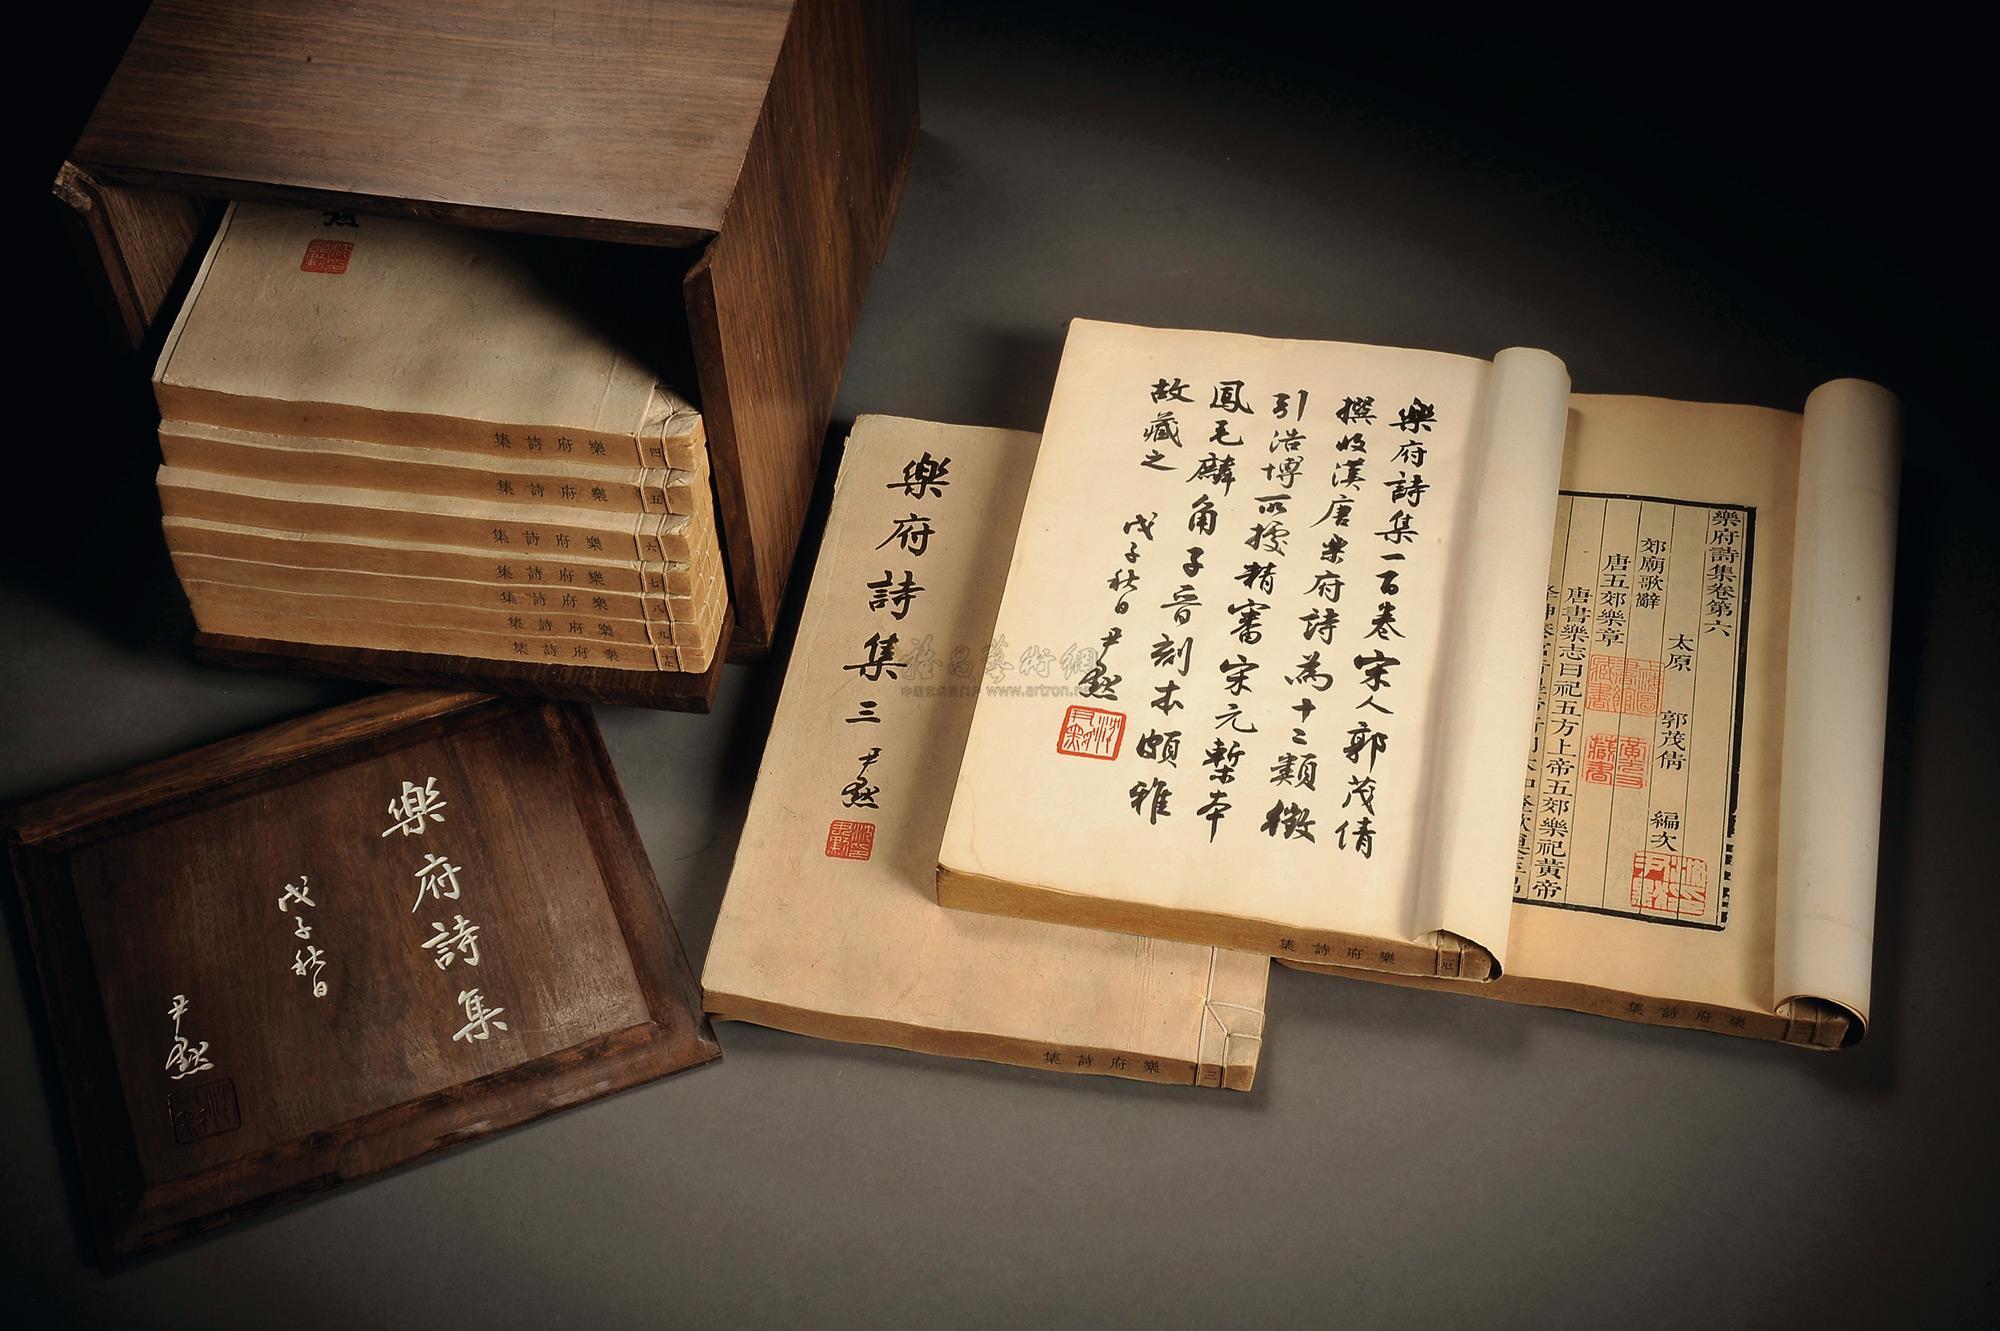 樂府詩集一百卷宋人郭茂倩
撰收漢唐樂府詩為十二類徵
引浩博所援精審宋元槧本
鳳毛麟角子晉刻本頗雅
故藏之
戊子秋日尹默
樂府詩集卷第六
太原 郭茂倩 編次
郊廟歌辭
唐五郊樂章
唐書樂志曰祀五方上帝五郊樂祀黃帝
樂府詩集三 尹默
樂府詩集
戊子秋日
尹默
默
樂府詩集 四
樂府詩集 五
樂府詩集 六
樂府詩集 七
樂府詩集 八
樂府詩集 九
樂府詩集 十止
樂府詩集 三
樂府詩集
樂府詩集 二
雅昌藝術網
www.artron.net